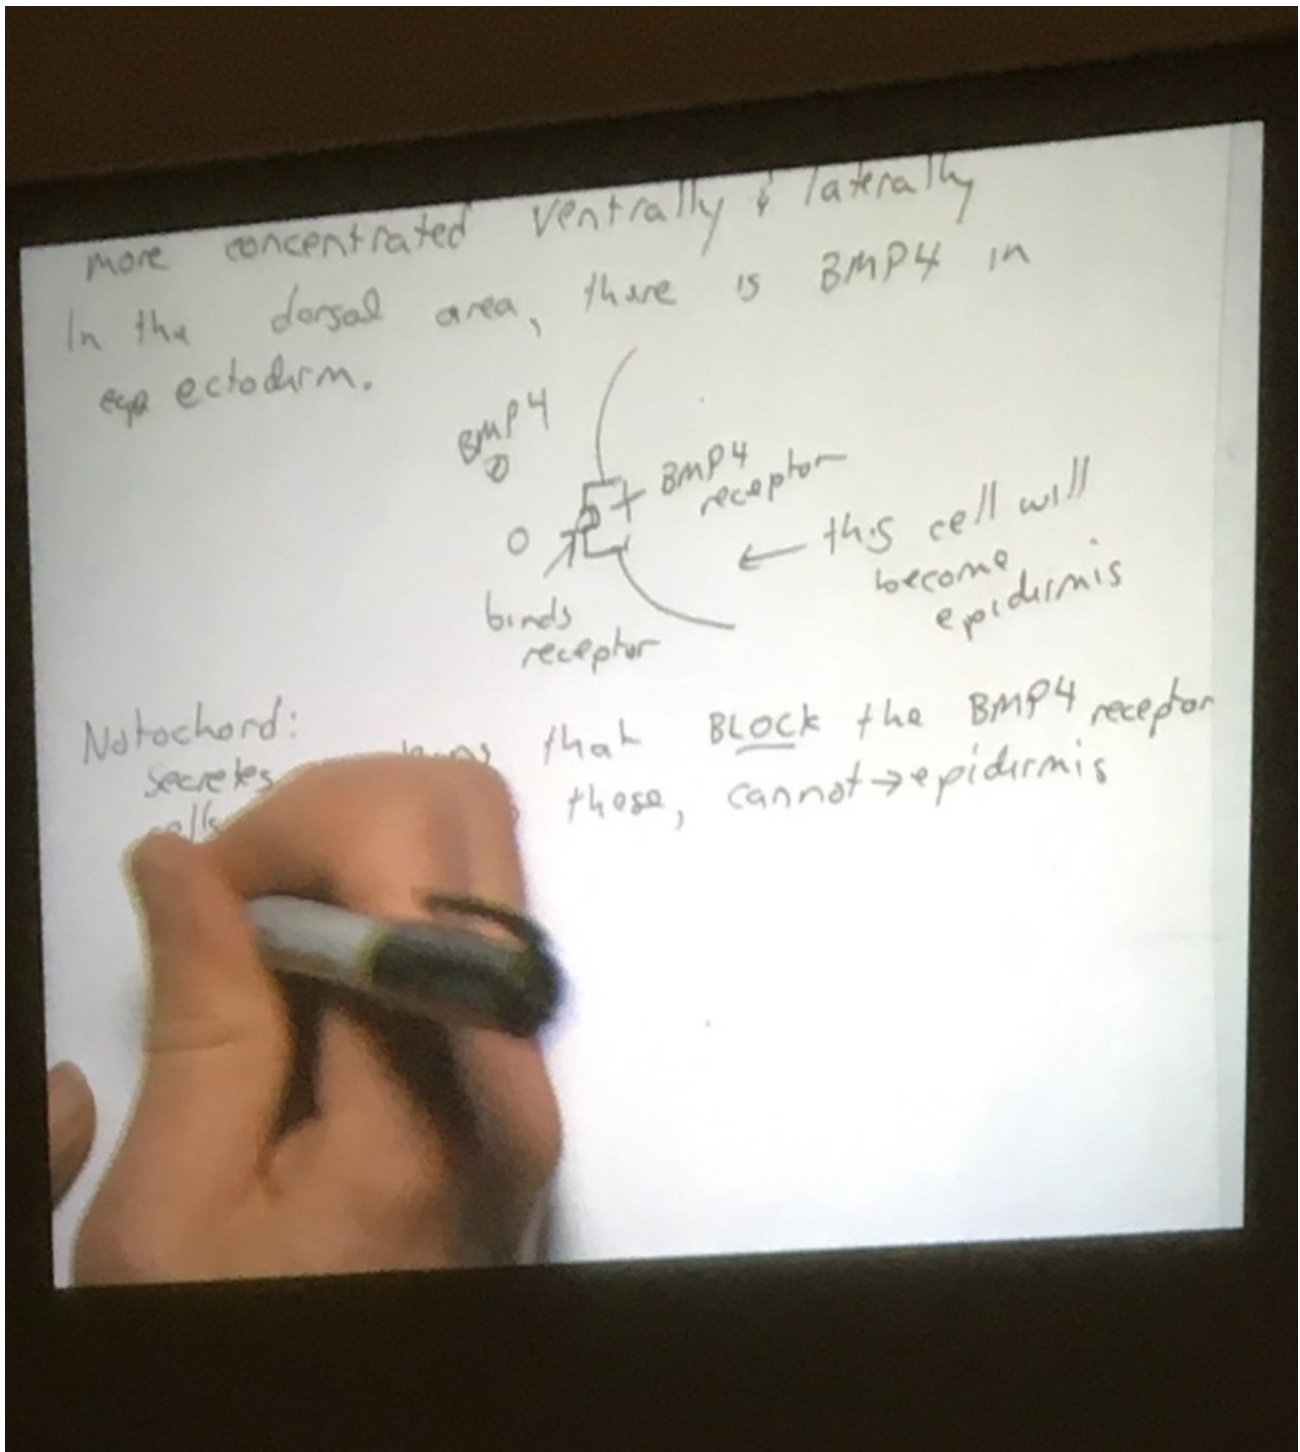 more concentrated ventrally & laterally
In the dorsal area, there is BMP4 in
ectoderm.
BMP4
BMP4
receptor
← this cell will
become
epidermis
binds
receptor
Notochord:
secretes that BLOCK the BMP4 receptor
cells these, cannot → epidermis